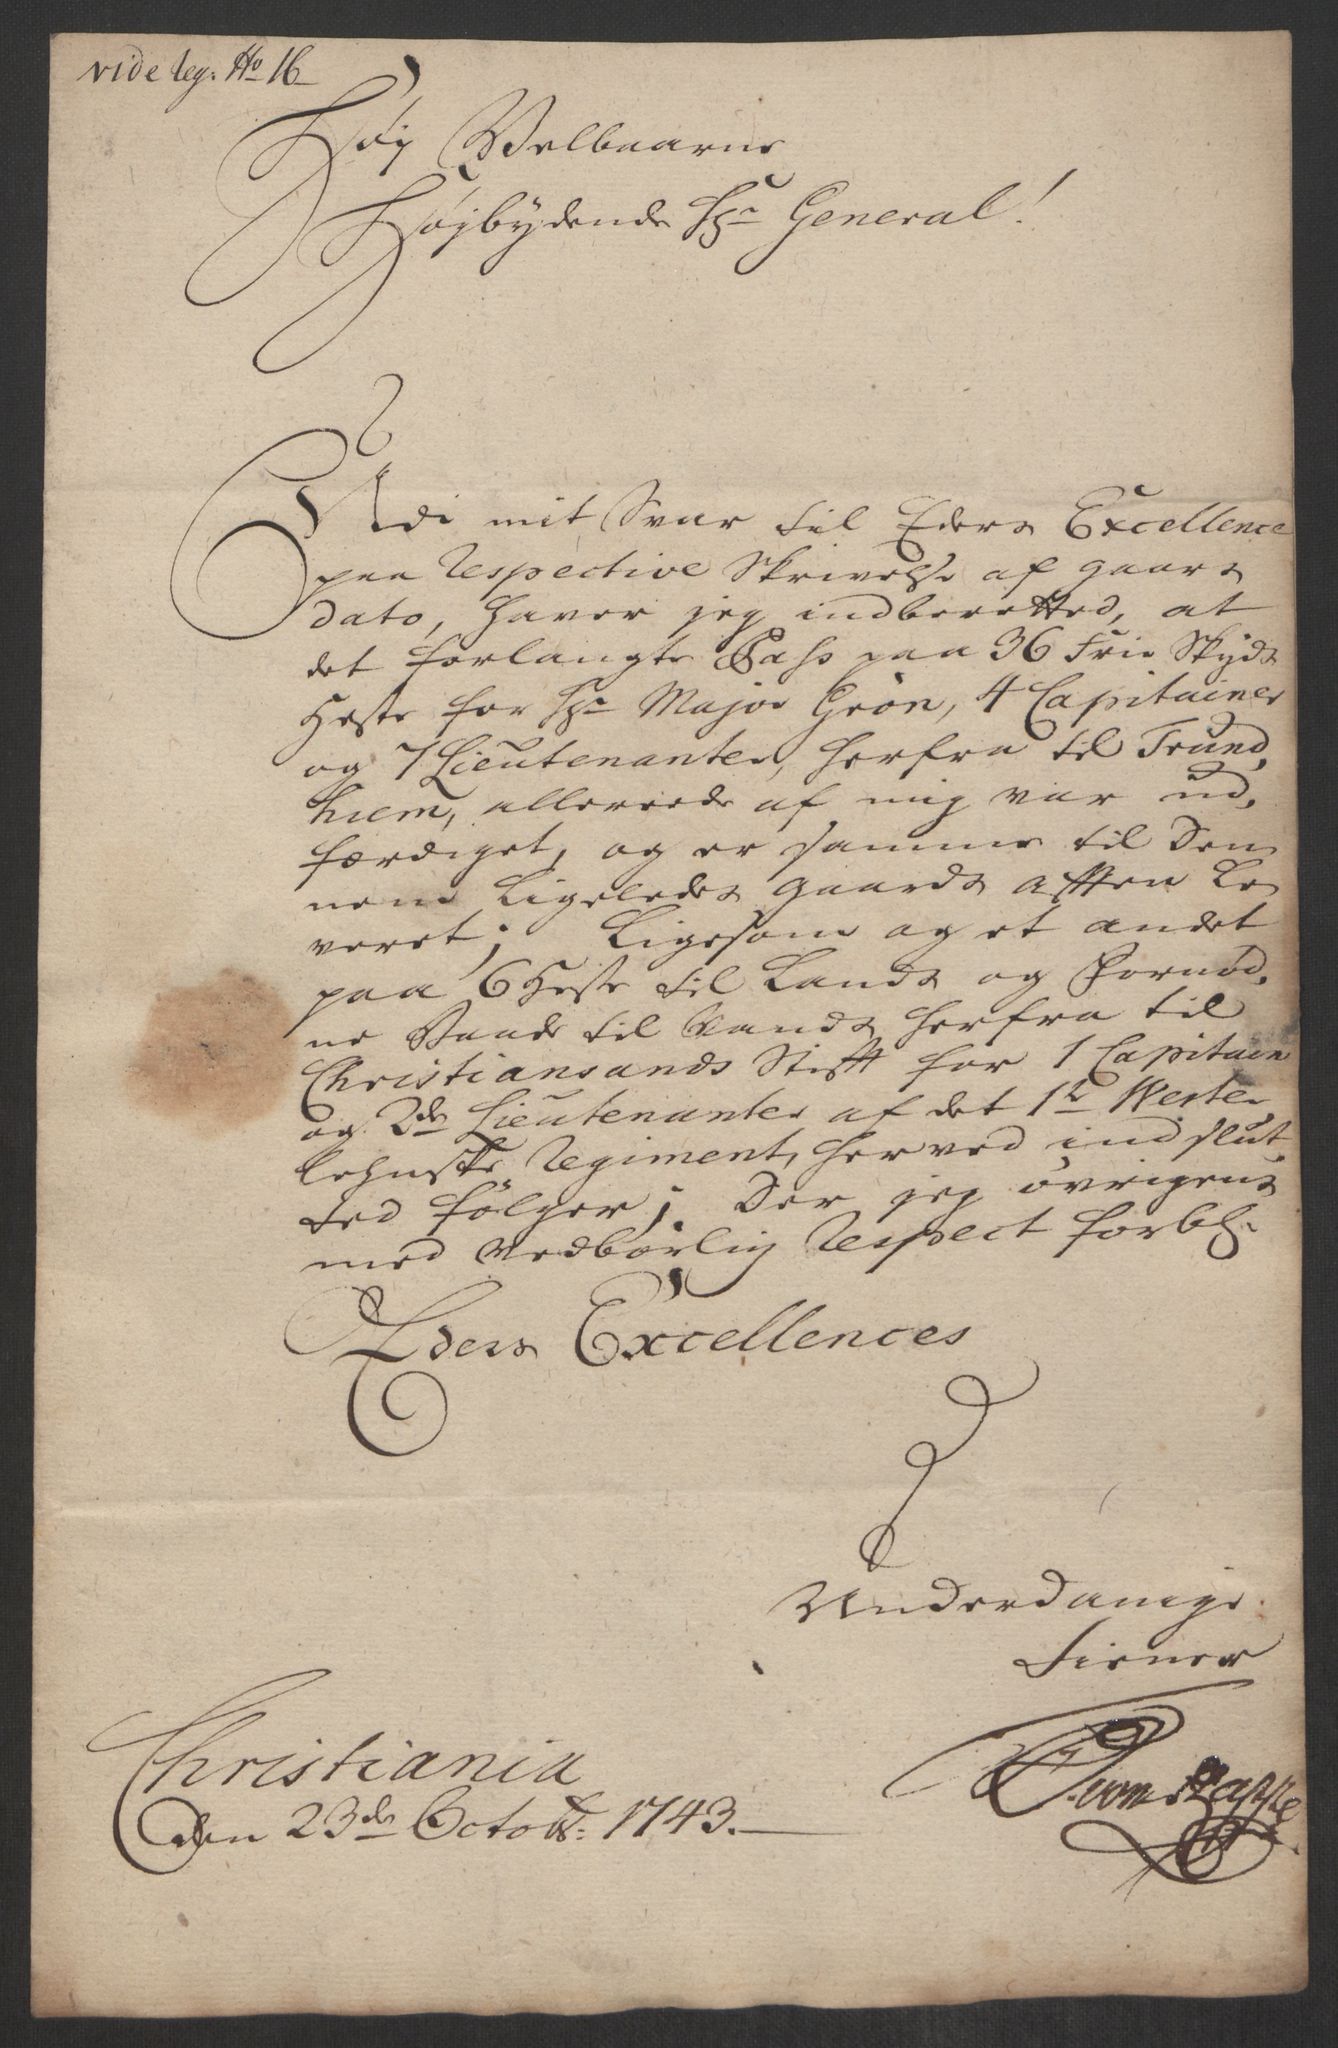 vide leg. No 16
Høy Velbaarne
Højbydende Hr General!
Udi mit Svar til Eders Excellence
paa respective Skrivelse af gaars
dato, haver jeg indberetted, at
det forlangte Pass paa 36 Frie Skyds
Heste for Hr Major Grøn, 4 Capitainer
og 7 Lieutenanter, herfra til Trund,
hiem, allereede af mig var ud,
færdiget, og er samme til Den
nem Ligeledes gaards afften Le
veret; Ligesom og et andet
paa 6 Heste til Lands og Fornød,
ne Baade til Vands herfra til
Christiansands Stift for 1 Capitain
og 2de Lieutenanter af det 1te Wester,
lehnske Regiment, herved indslut,
ted følger; Der jeg øvrigens
med Vedbørlig Respect forbl.
Eders Excellences
Underdanige
Tiener
Christiania
den 23de Octobr: 1743.